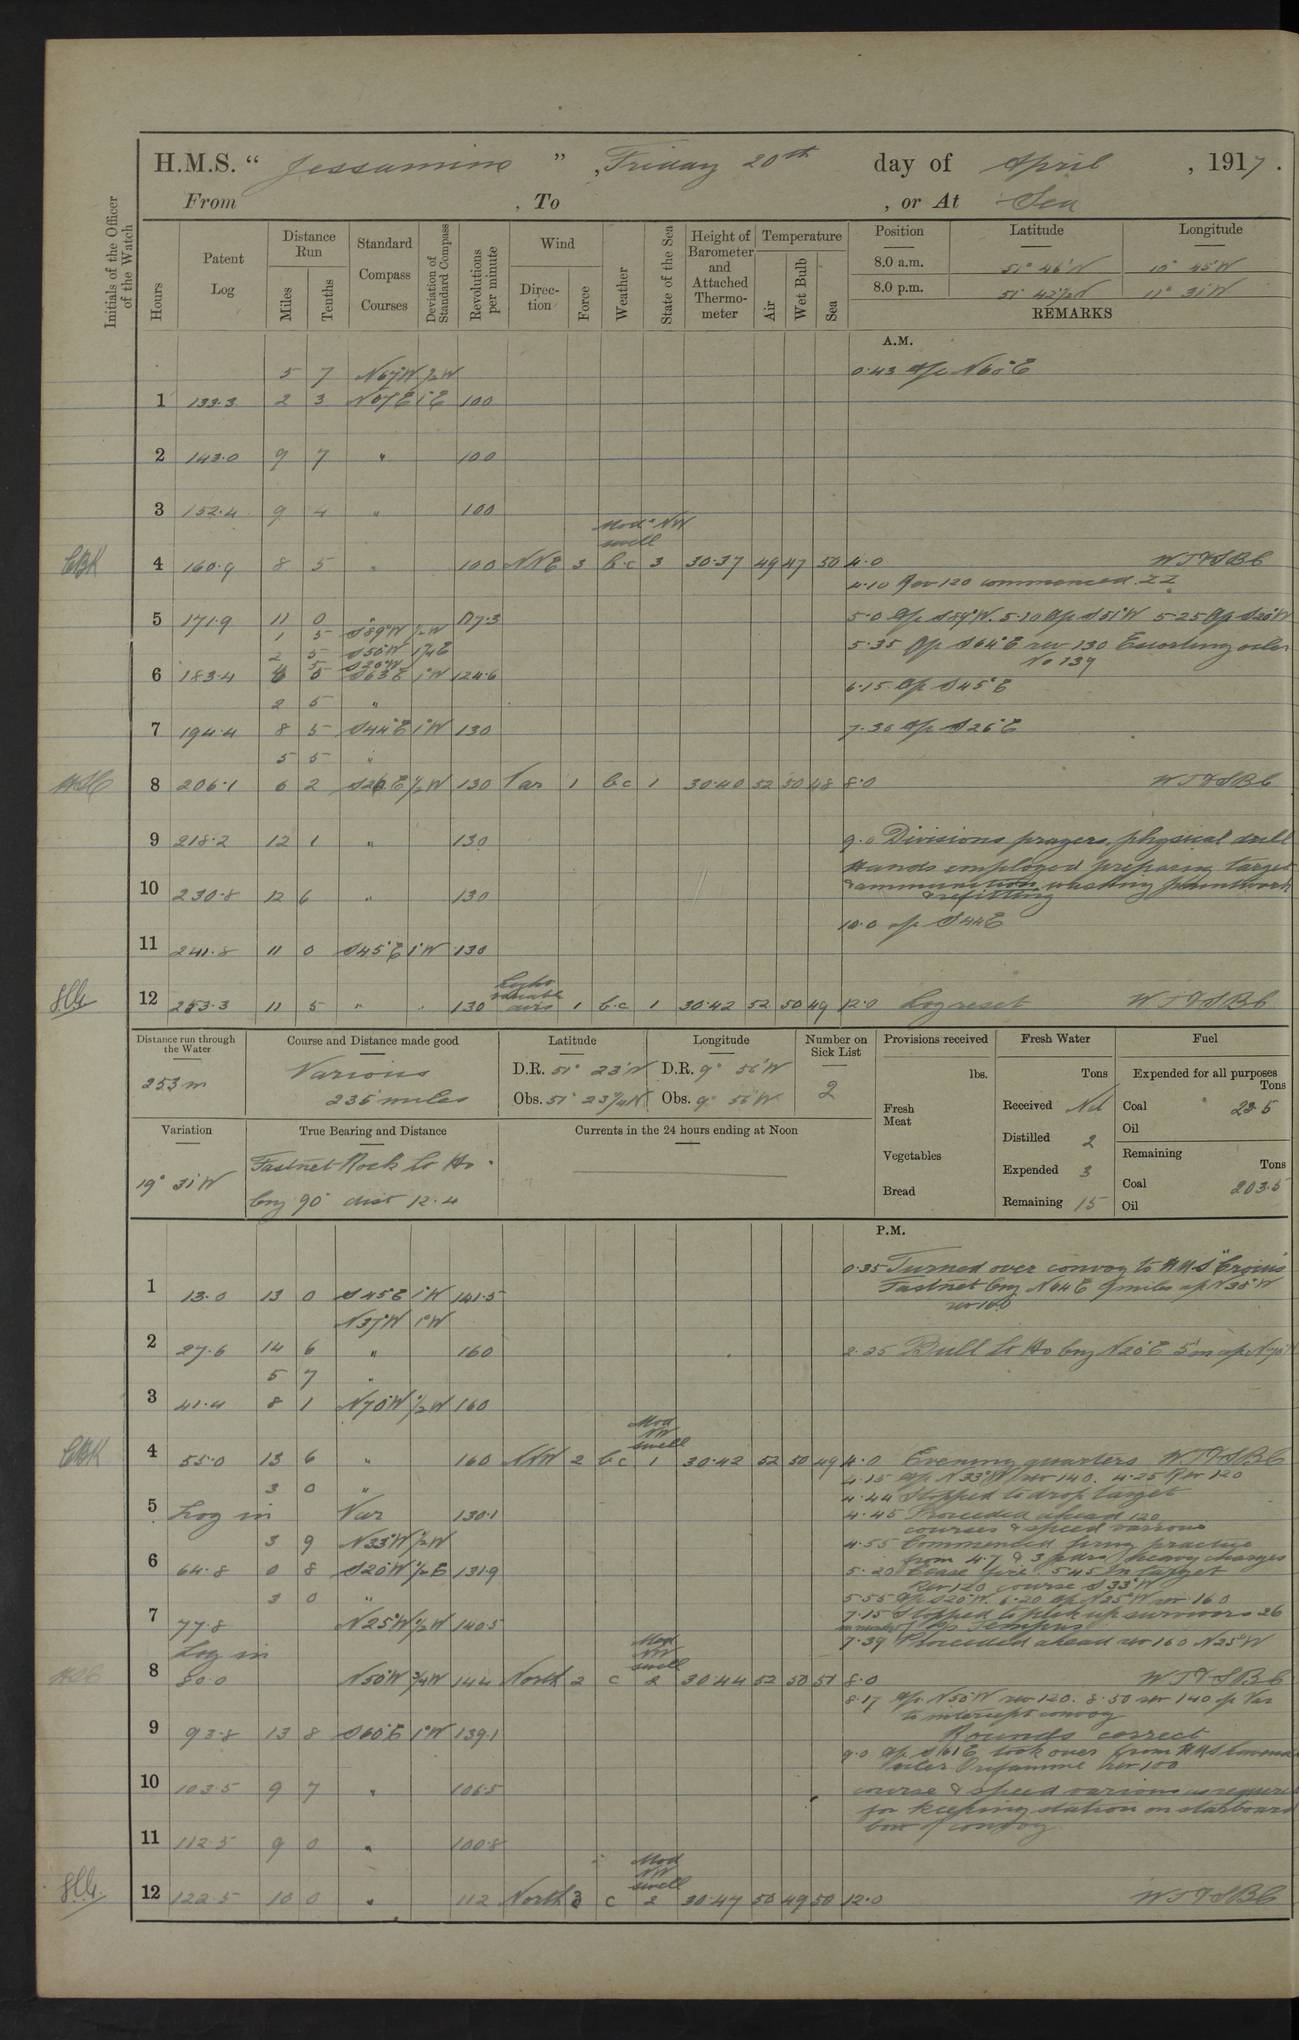 H.M.S. “ Jessamine ” , Friday 20th day of April , 1917 .
From , To , or At Sea
Initials of the Officer of the Watch
Hours
Patent Log
Distance Run
Miles
Tenths
Standard Compass Courses
Deviation of Standard Compass
Revolutions per minute
Wind
Direction
Force
Weather
State of the Sea
Height of Barometer and Attached Thermometer
Temperature
Air
Wet Bulb
Sea
Position Latitude Longitude
8.0 a.m. 51° 46'N 10° 45'W
8.0 p.m. 51° 42½N 11° 31'W
REMARKS
A.M.
5 7 N67°W ½W 0.43 A/c N60°E
1 133.3 2 3 N67E 1°E 100
2 143.0 9 7 " 100
3 152.4 9 4 " 100
Mod NW swell
CBK 4 160.9 8 5 " 100 NNE 3 b.c 3 30.37 49 47 50 4.0 WTFSBC
4.10 Rev 120 commenced ZZ
5 171.9 11 0 " 117.3 5.0 A/c S89°W. 5.10 A/c S51°W 5.25 A/c S20°W
1 5 S89°W ½W
2 5 S50W 1¼E 5.35 A/c S64°E rev 130 Escorting oiler
5 S20°W No 137
6 183.4 6 0 S63E 1°W 124.6
6.15 A/c S45°E
2 5 "
7 194.4 8 5 S44°E 1°W 130 7.30 A/c S26°E
5 5 "
8 206.1 6 2 S26E ½W 130 Var 1 b.c 1 30.40 52 50 48 8.0 WTFSBC
9 218.2 12 1 " 130 9.0 Divisions prayers. physical drill
Hands employed preparing target
10 230.8 12 6 " 130 & ammunition washing paintwork
& refitting
10.0 A/c S44E
11 241.8 11 0 S45°E 1°W 130
Light variable airs
12 253.3 11 5 " " 130 1 b.c 1 30.42 52 50 49 12.0 Log reset WTFSBC
Distance run through the Water
253 m
Course and Distance made good
Various
235 miles
Latitude
D.R. 51° 23'N
Obs. 51° 23¼N
Longitude
D.R. 9° 56'W
Obs. 9° 56'W
Number on Sick List
2
Provisions received
lbs.
Fresh Meat
Vegetables
Bread
Fresh Water
Tons
Received Nil
Distilled 2
Expended 3
Remaining 15
Fuel
Expended for all purposes
Tons
Coal 23.5
Oil
Remaining
Tons
Coal 203.5
Oil
Variation
19° 31'W
True Bearing and Distance
Fastnet Rock Lt Ho
brg 90° dist 12.4
Currents in the 24 hours ending at Noon
P.M.
0.35 Turned over convoy to HMS "Crocus"
1 13.0 13 0 S45E 1°W 141.5 Fastnet brg N64E 9 miles A/c N38°W
rev 160
N37°W 1°W
2 27.6 14 6 " 160 2.25 Bull Lt Ho brg N20°E 5'm A/c N70°W
5 7 "
3 41.4 8 1 N70°W ½W 160
Mod NW swell
CBK 4 55.0 13 6 " 160 NNW 2 b.c 1 30.42 52 50 49 4.0 Evening quarters WTFSBC
4.15 A/c N33°W rev 140. 4.25 Rev 120
3 0 " 4.44 Stopped to drop target
5 Log in Var 130.1 4.45 Proceeded ahead 120
courses & speed various
3 9 N33°W ½W 4.55 Commenced firing practice
from 4.7 & 3 pdrs heavy charges
6 64.8 0 8 S20°W ½E 131.9 5.20 Cease fire. 5.45 In target
Rev 120 course S33°W
3 0 " 5.55 A/c S20°W. 6.20 A/c N25°W rev 160
7 77.8 N25°W ½W 140.5 7.15 Stopped to pick up survivors 26
in number
Log in 7.39 Proceeded ahead rev 160 N25°W
Mod NW swell
8 80.0 N50°W ¾W 144 North 2 c 2 30.44 52 50 51 8.0 WTFSBC
8.17 A/c N50°W rev 120. 8.50 rev 140 A/c Var
to intercept convoy
9 93.8 13 8 S60°E 1°W 139.1 Rounds correct
9.0 A/c S61E took over from HMS
oiler Oriflamme Rev 100
10 103.5 9 7 " 106.5 course & speed various as required
for keeping station on starboard
11 112.5 9 0 " 100.8 bow of convoy
Mod NW swell
12 122.5 10 0 " 112 North 3 c 2 30.47 50 49 50 12.0 WTFSBC